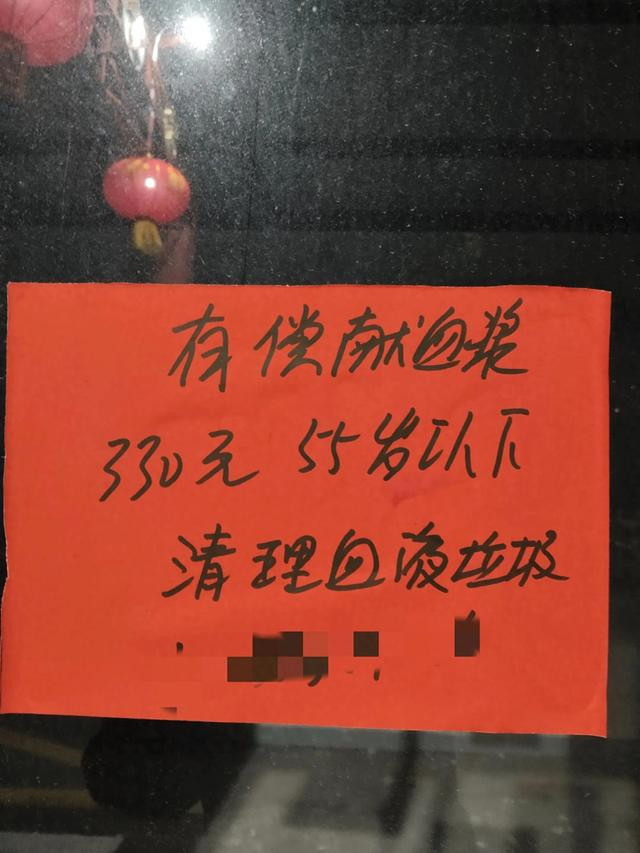 有偿献血浆
330元 55岁以下
清理血液垃圾